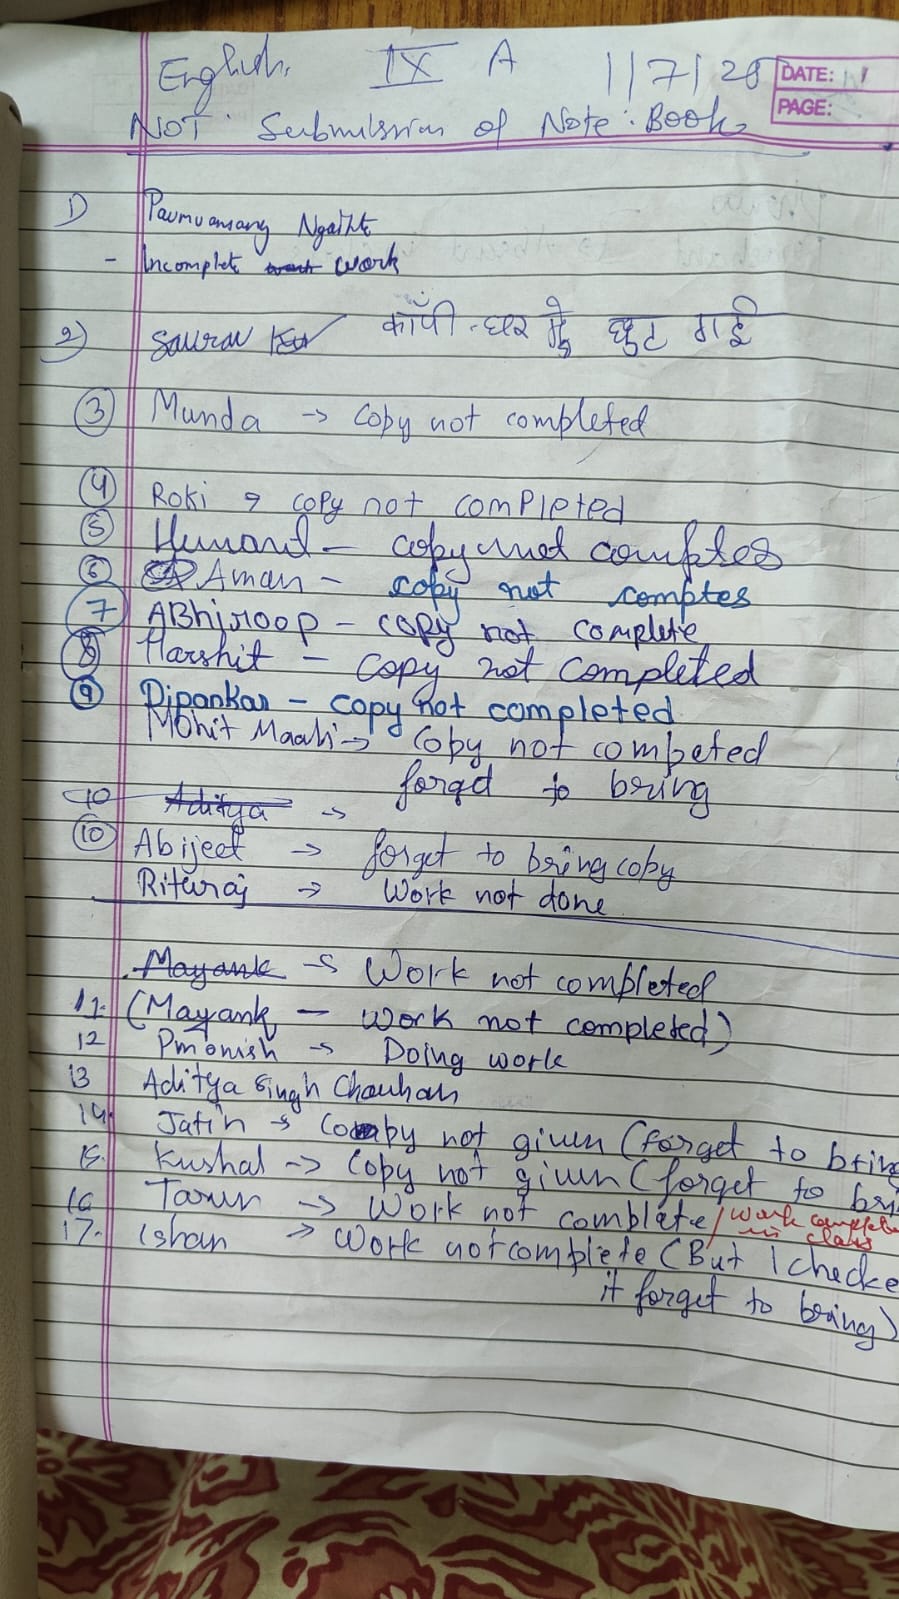 English. IX A 1/7/25 DATE:
PAGE:
NOT Submission of Note:Book
1) Paumuansang Ngaihte
- Incomplete work
2) Saurav कॉपी घर में छुट गई
3 Munda → Copy not completed
4 Roki → copy not completed
5 copy not comptes
6 Aman - copy not comptes
7 ABhiroop - copy not complete
8 Harshit - copy not completed
9 Dipankar - copy not completed
Mohit → Copy not competed
forget to bring
10 Aditya →
10 Abijeet → forget to bring copy
Rituraj → Work not done
Mayank → Work not completed
11. (Mayank - work not completed)
12 Pmonish → Doing work
13 Aditya Singh Chauhan
14. Jatin → Copy not given (forget to bring
15. Kushal → Copy not given (forget to bri
16 Tarun → Work not complete / work complete
in class
17. Ishan → Work not complete (But I checke
it forget to bring)